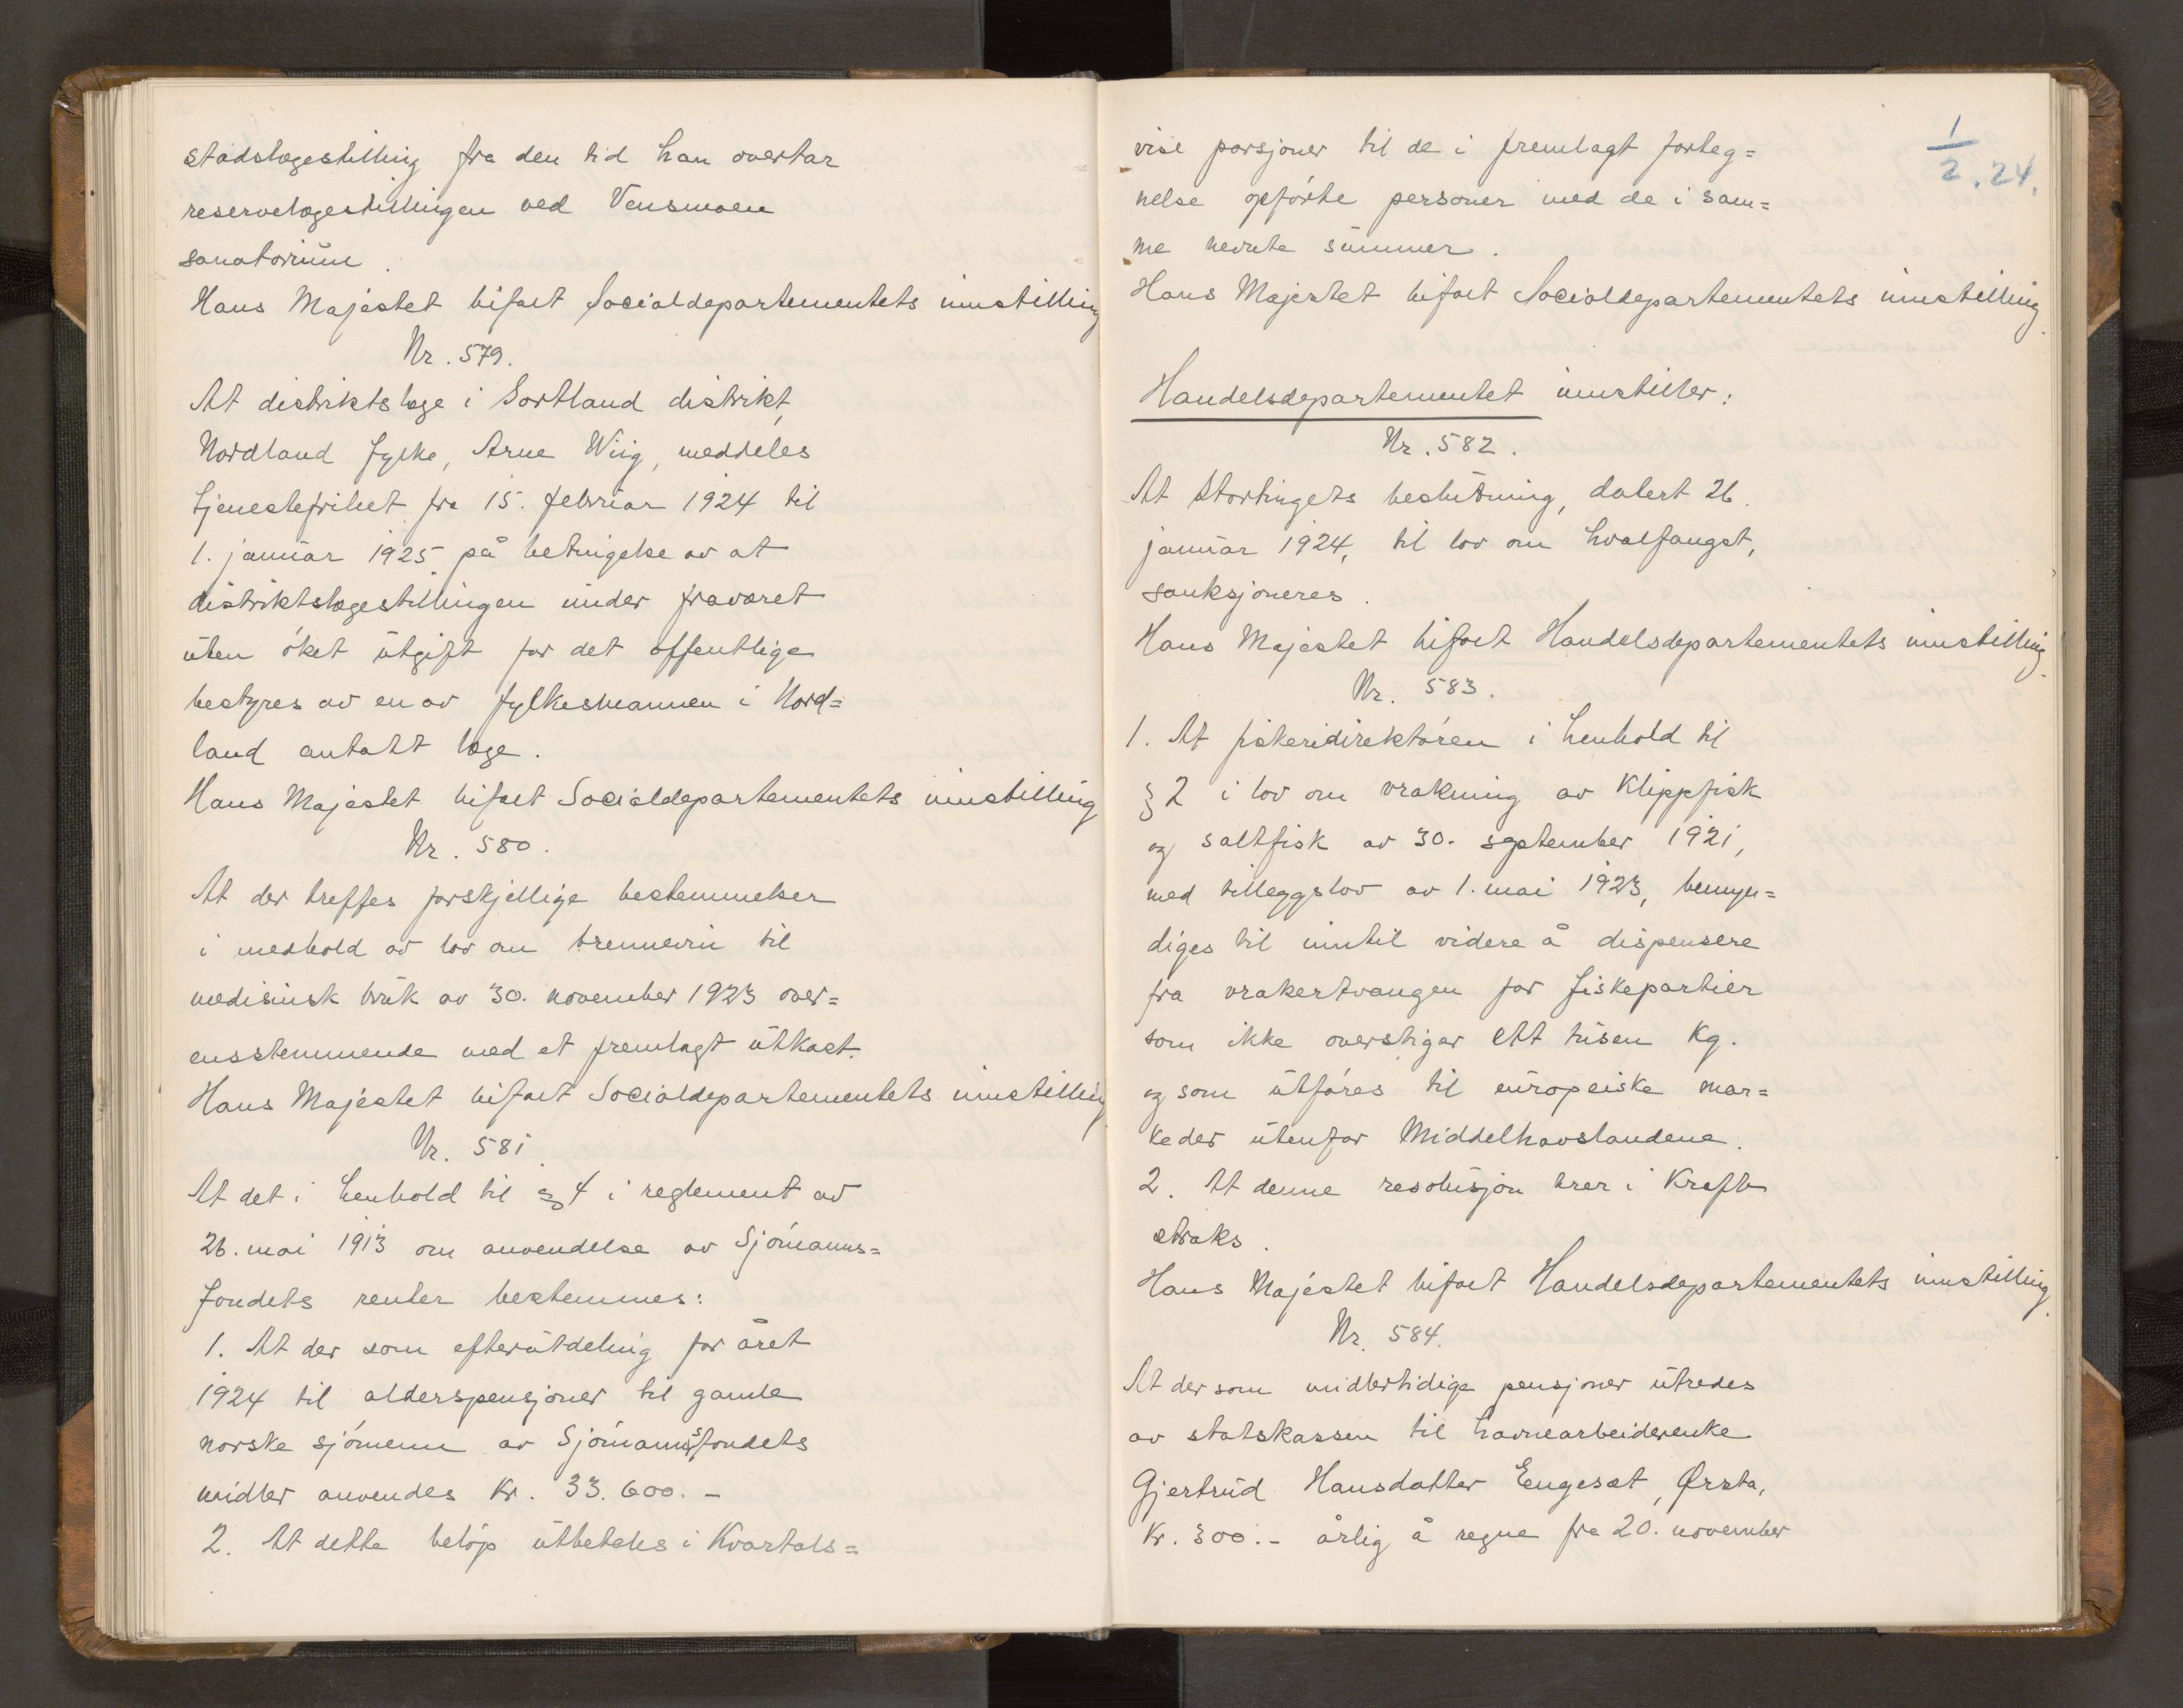 stadslægestilling fra den tid han overtar
reservelægestillingen ved Vensmoen
sanatorium.
Hans Majestet bifalt Socialdepartementets innstilling
Nr. 579.
At distriktslæge i Sortland distrikt,
Nordland fylke, Arne Wiig, meddeles
tjenestefrihet fra 15. februar 1924 til
1. januar 1925 på betingelse av at
distriktslægestillingen under fraværet
uten øket utgift for det offentlige
bestyres av en av fylkesmannen i Nord=
land antatt læge.
Hans Majestet bifalt Socialdepartementets innstilling
Nr. 580.
At der treffes forskjellige bestemmelser
i medhold av lov om brennevin til
medisinsk bruk av 30. november 1923 over=
ensstemmende med et fremlagt utkast.
Hans Majestet bifalt Socialdepartementets innstilling
Nr. 581.
At det i henhold til § 4 i reglement av
26. mai 1913 om anvendelse av Sjømanns=
fondets renter bestemmes:
1. At der som efterutdeling for året
1924 til alderspensjoner til gamle
norske sjømenn av Sjømannsfondets
midler anvendes kr. 33.600.-
2. At dette beløp utbetales i kvartals=
1/2.24.
vise porsjoner til de i fremlagt forteg=
nelse opførte personer med de i sam=
me nevnte summer.
Hans Majestet bifalt Socialdepartementets innstilling.
Handelsdepartementet innstiller:
Nr. 582.
At Stortingets beslutning, datert 26.
januar 1924, til lov om hvalfangst,
sanksjoneres.
Hans Majestet bifalt Handelsdepartementets innstilling.
Nr. 583.
1. At fiskeridirektøren i henhold til
§ 2 i lov om vrakning av klippfisk
og saltfisk av 30. september 1921,
med tilleggslov av 1. mai 1923, bemyn=
diges til inntil videre å dispensere
fra vrakertvangen for fiskepartier
som ikke overstiger ett tusen kg.
og som utføres til europeiske mar=
keder utenfor Middelhavslandene.
2. At denne resolusjon trer i kraft
straks.
Hans Majestet bifalt Handelsdepartementets innstilling.
Nr. 584.
At der som midlertidige pensjoner utredes
av statskassen til havnearbeiderenke
Gjertrud Hansdatter Engeset, Ørsta,
kr. 300.- årlig å regne fra 20. november